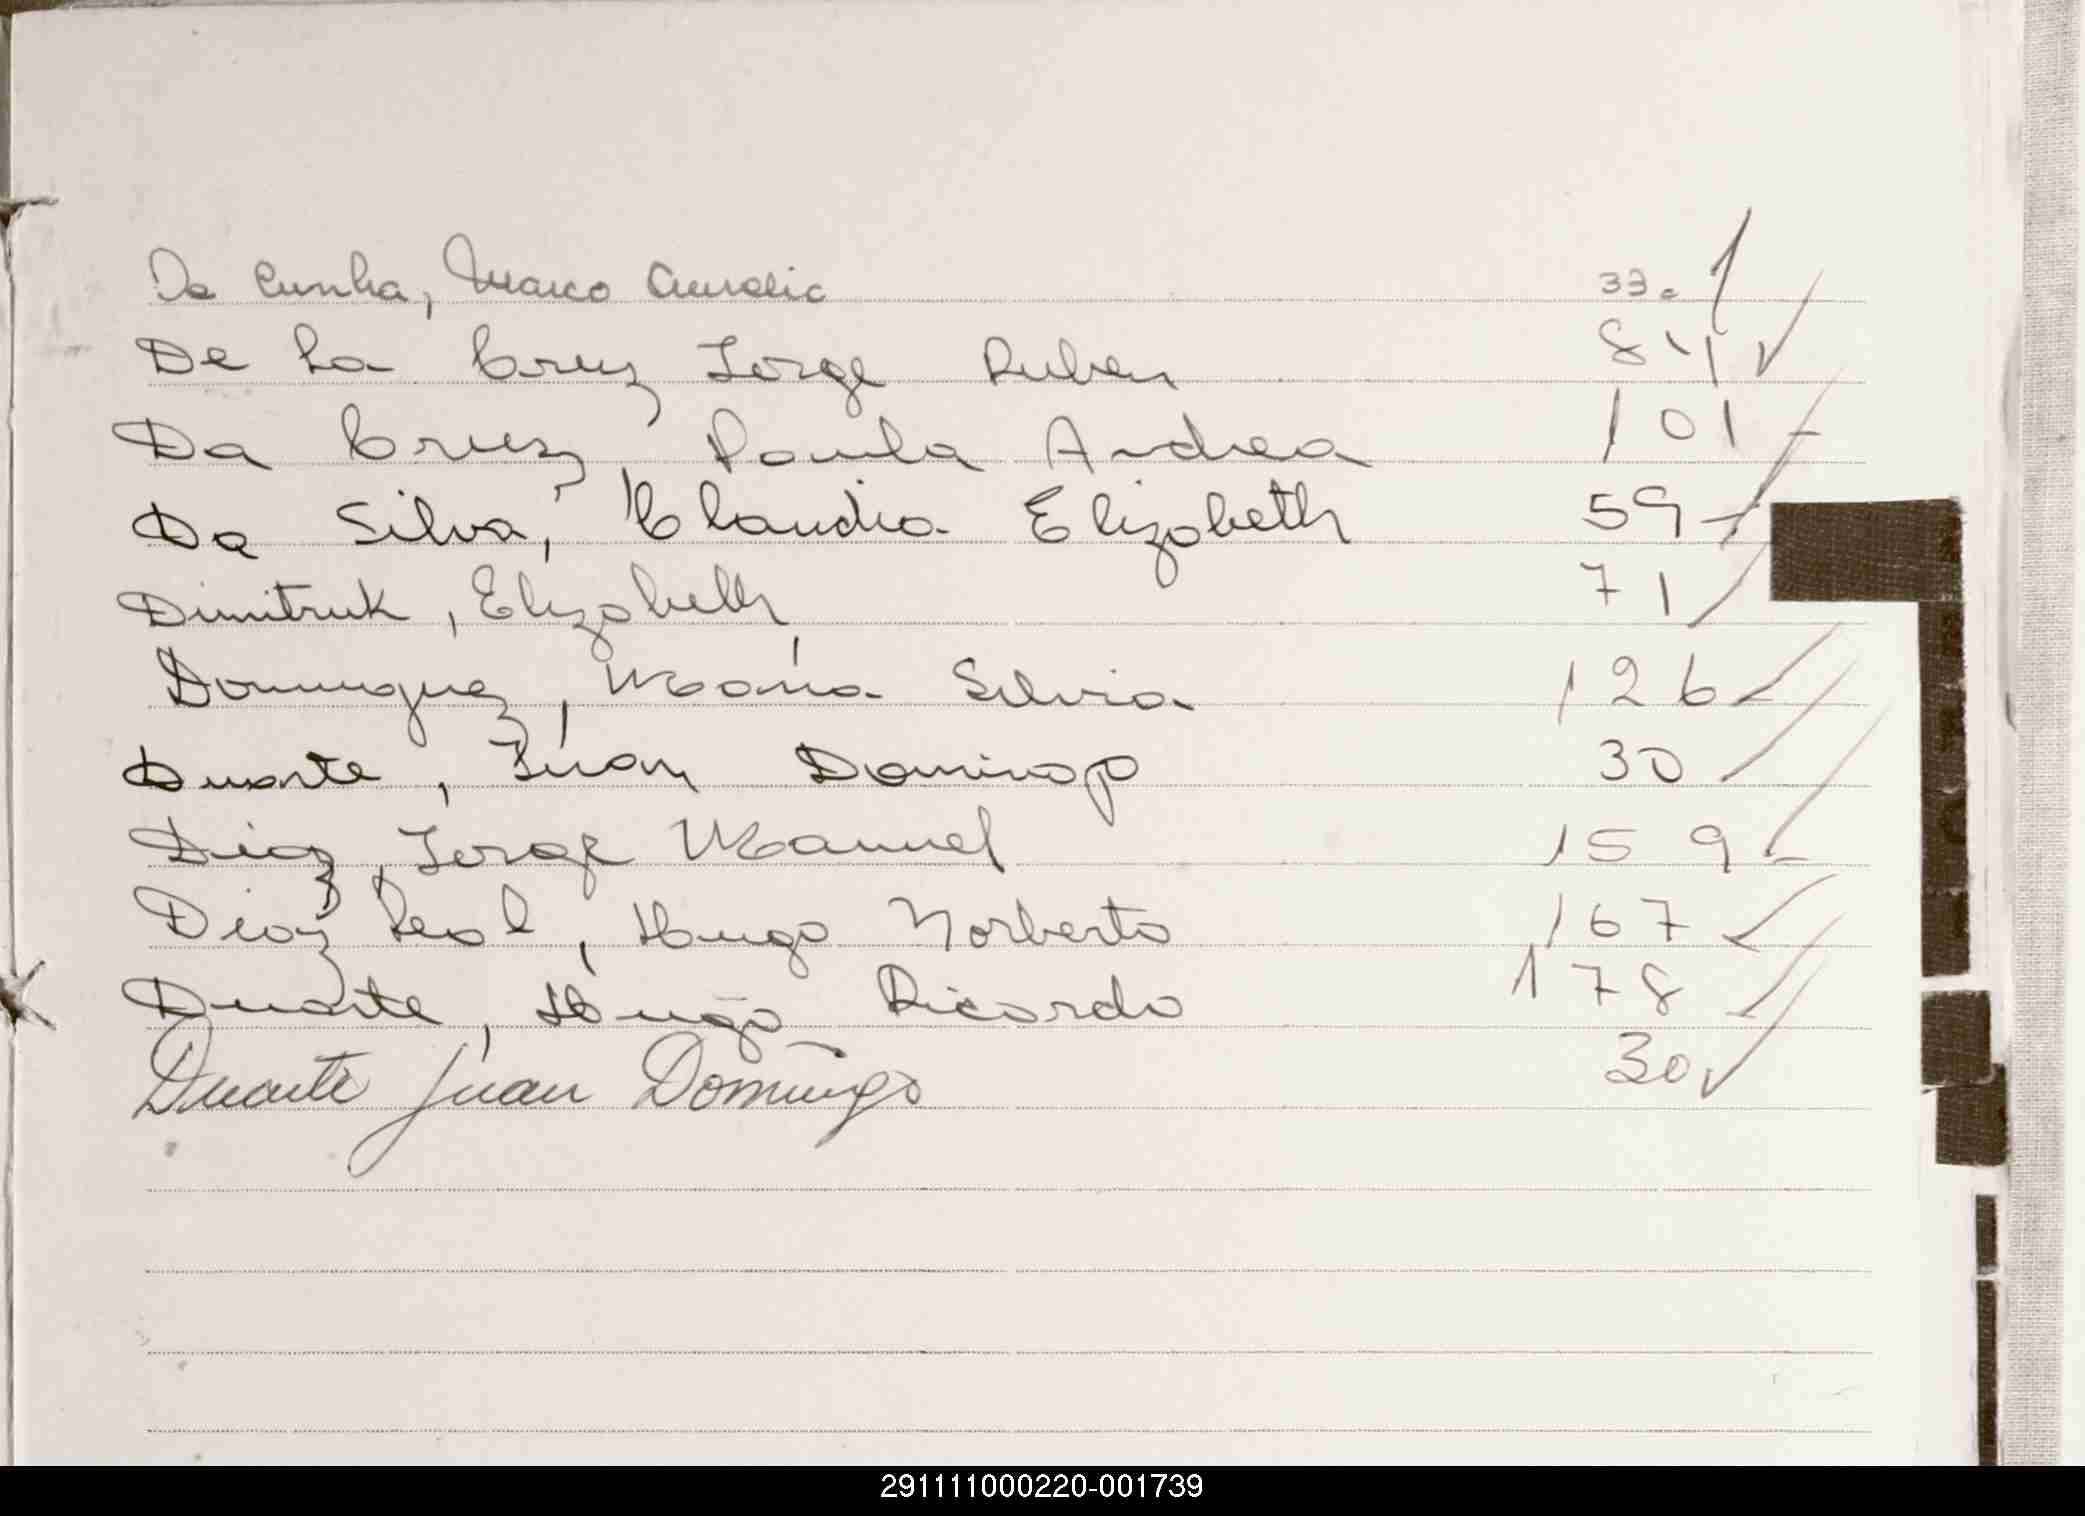 Da Cunha, Marco Aurelio 33.
De La Cruz, Jorge Ruben 84 ✓
Da Cruz, Paula Andrea 101
Da Silva, Claudia Elizabeth 59
Dimitruk, Elizabeth 71
Dominguez, Maria Silvia 126
Duarte, Juan Domingo 30
Diaz, Jorge Manuel 159
Diaz Leal, Hugo Norberto 167
Duarte, Hugo Ricardo 178
Duarte Juan Domingo 30 ✓
291111000220-001739